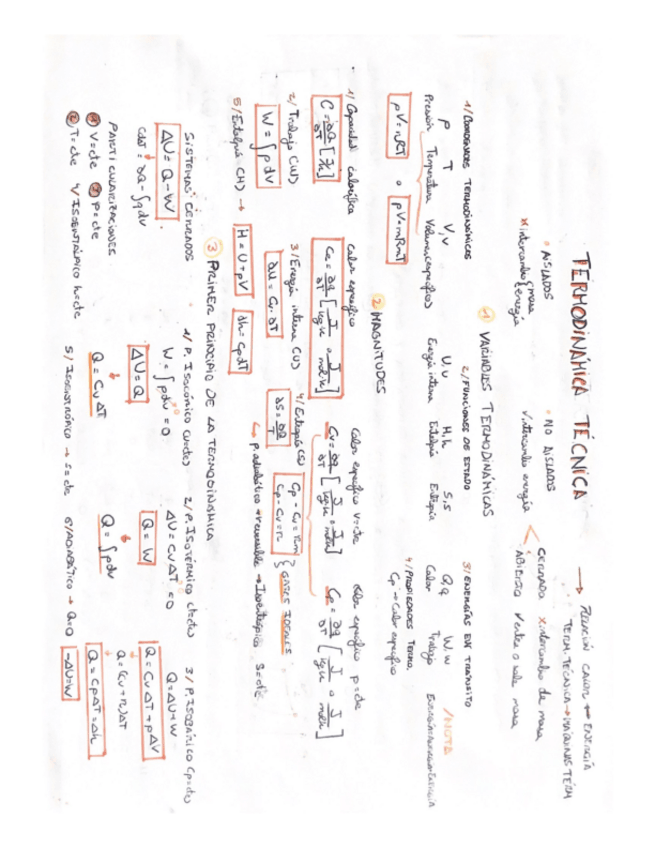 TERMODINÁMICA TÉCNICA → RELACIÓN CALOR ↔ ENERGÍA
TERM. TÉCNICA → MÁQUINAS TÉRM
• AISLADOS
x intercambio { masa
energía
• NO AISLADOS
√ intercambio energía
CERRADO x intercambio de masa
ABIERTO Entra o sale masa
1 VARIABLES TERMODINÁMICAS
1/ COORDENADAS TERMODINÁMICAS
P T V, v
Presión Temperatura Volumen (específico)
pV = nRT o pV = mRmT
2/ FUNCIONES DE ESTADO
U, u H, h S, s
Energía interna Entalpía Entropía
3/ ENERGÍAS EN TRÁNSITO
Q, q W, w
Calor Trabajo
4/ PROPIEDADES TERMO.
Cp → Calor específico
NOTA
2 MAGNITUDES
1/ Capacidad calorífica
C = ∂Q/∂T [J/K]
Calor específico
Ce = ∂q/∂T [J/kg·K o J/mol·K]
Calor específico V=cte
Cv = ∂q/∂T [J/kg·K o J/mol·K]
Calor específico p=cte
Cp = ∂q/∂T [J/kg·K o J/mol·K]
Cp - Cv = Rm
Cp - Cv = R
} GASES IDEALES
2/ Trabajo (W)
W = ∫pdv
3/ Energía interna (U)
∂U = Cv · ∂T
4/ Entropía (S)
∂S = ∂Q/T
↳ P. adiabático + reversible → Isoentrópico S=cte.
5/ Entalpía (H) → H = U + pV dh = CpdT
3 PRIMER PRINCIPIO DE LA TERMODINÁMICA
SISTEMAS CERRADOS
ΔU = Q - W
CvdT = ∂Q - ∫pdv
PARTICULARIZACIONES
1 V=cte 3 P=cte
2 T=cte 4/ ISOENTRÓPICO
1/ P. Isocórico (V=cte)
W = ∫pdv = 0
ΔU = Q
Q = CvΔT
2/ P. Isotérmico (T=cte)
ΔU = CvΔT = 0
Q = W
Q = ∫pdv
3/ P. ISOBÁRICO (p=cte)
Q = ΔU + W
Q = CvΔT + pΔV
Q = (Cv + R)ΔT
Q = CpΔT = Δh
5/ Isoentrópico → S=cte
6/ ADIABÁTICO → Q=0 -ΔU=W